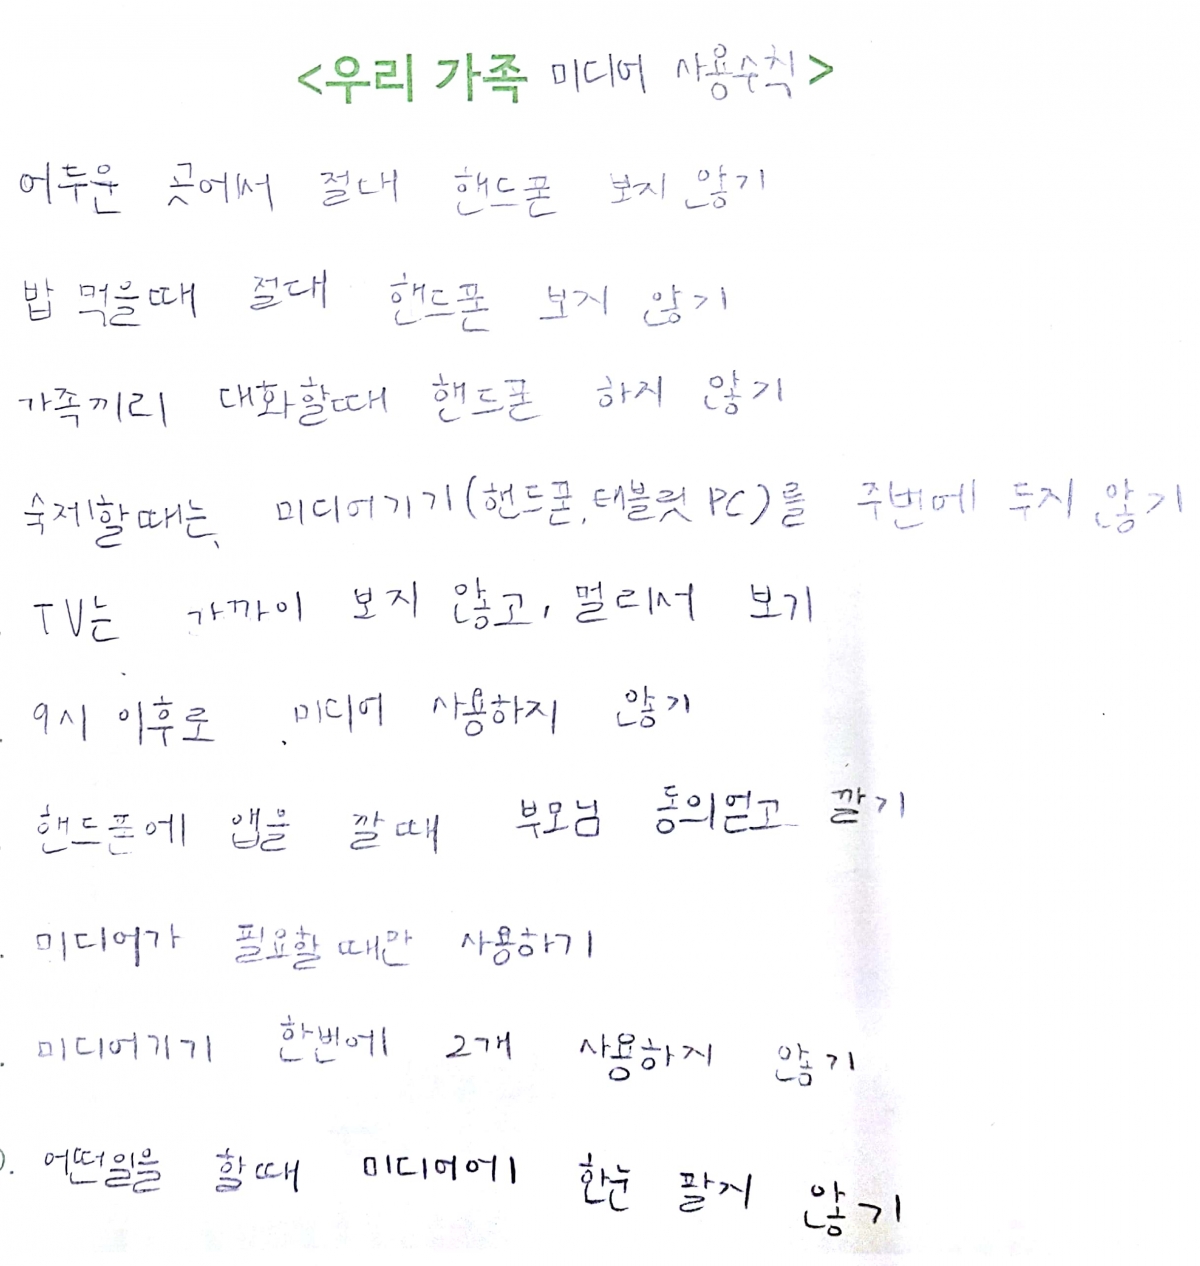 <우리 가족 미디어 사용수칙>
어두운 곳에서 절대 핸드폰 보지 않기
밥 먹을때 절대 핸드폰 보지 않기
가족끼리 대화할때 핸드폰 하지 않기
숙제할때는, 미디어기기(핸드폰,태블릿 PC)를 주번에 두지 않기
TV는 가까이 보지 않고, 멀리서 보기
9시 이후로 미디어 사용하지 않기
핸드폰에 앱을 깔 때 부모님 동의얻고 깔기
미디어가 필요할때만 사용하기
미디어기기 한번에 2개 사용하지 않기
). 어떤일을 할때 미디어에 한눈 팔지 않기